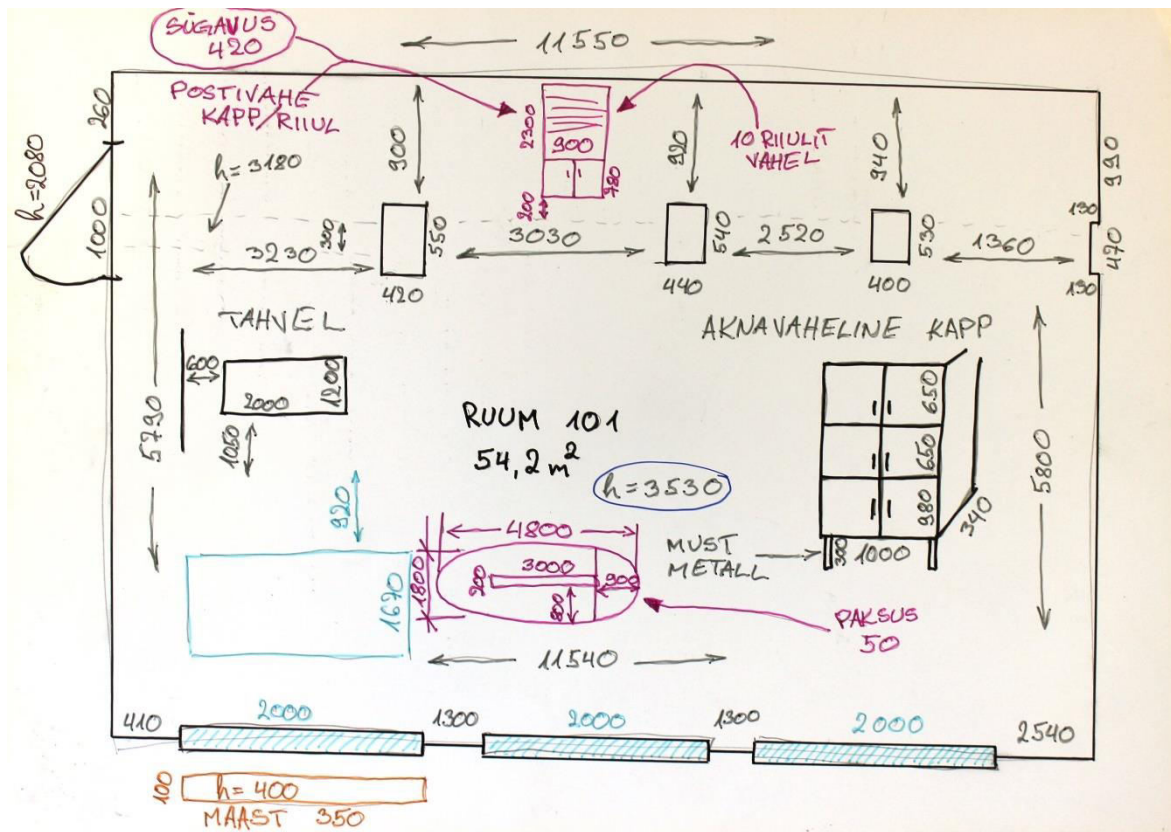 SÜGAVUS
420
11550
POSTIVAHE
KAPP/RIIUL
10 RIIULIT
VAHEL
260
h=2080
1000
h=3180
900
2300
900
780
200
920
940
990
130
470
130
3230
300
550
420
3030
540
440
2520
530
400
1360
TAHVEL
600
2000
1200
1050
5790
920
RUUM 101
54,2 m²
h=3530
AKNAVAHELINE KAPP
650
650
980
340
300
1000
5800
MUST
METALL
4800
1800
3000
200
900
800
1670
PAKSUS
50
11540
410
2000
1300
2000
1300
2000
2540
100
h=400
MAAST 350